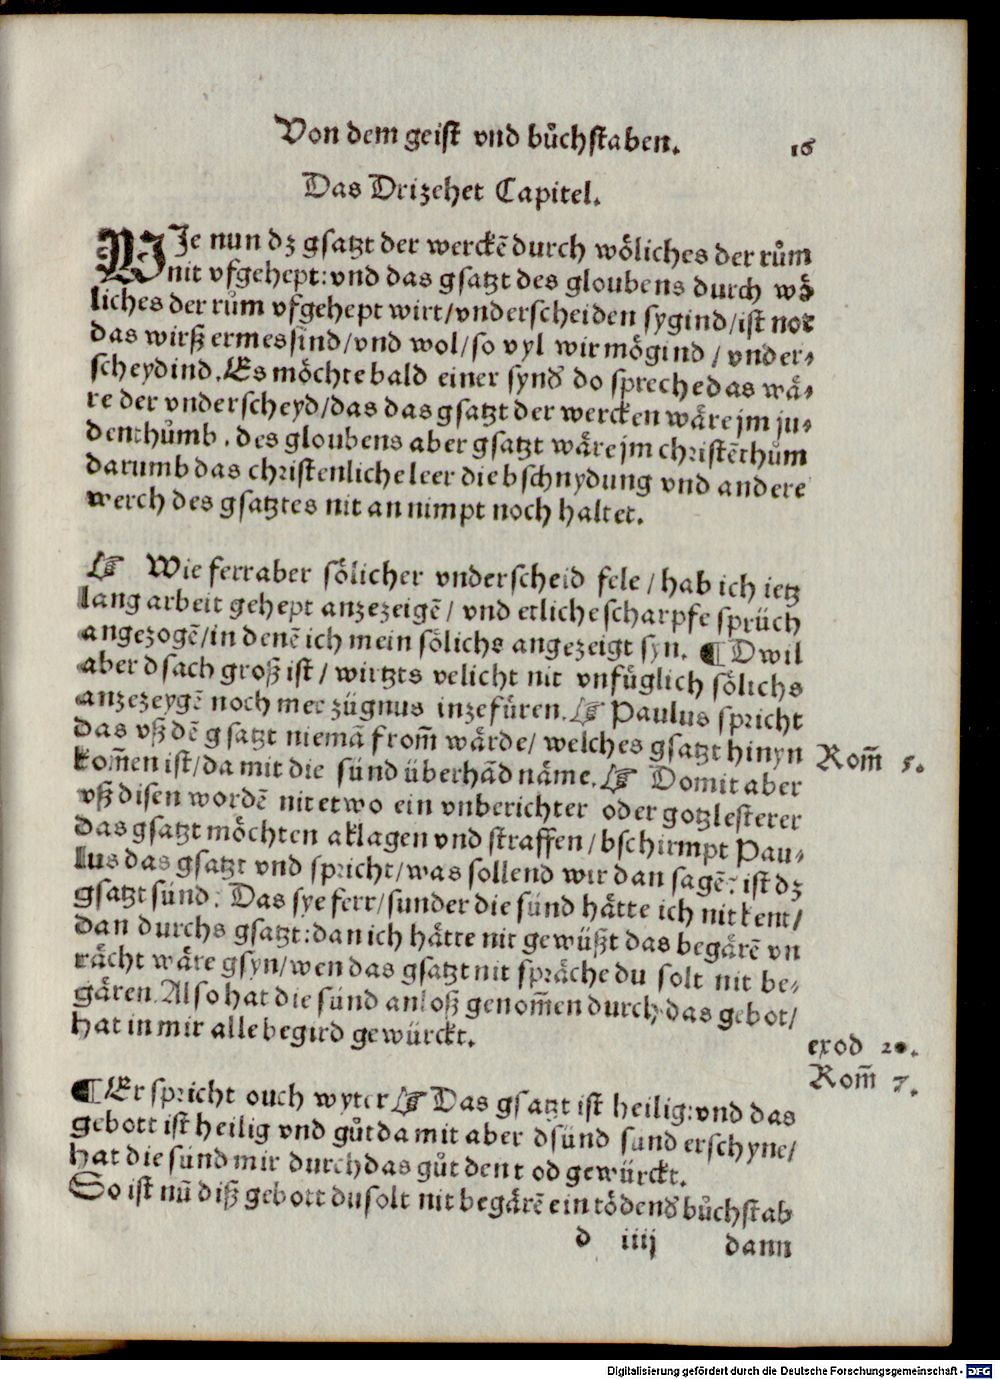 Von dem geist vnd bůchstaben. 16
Das Drizehet Capitel.
WIe nun dz gsatzt der werckē durch wöliches der rům
nit vfgehept: vnd das gsatzt des gloubens durch wö
liches der rům vfgehept wirt/vnderscheiden sygind/ist not
das wirß ermessind/vnd wol/so vyl wir mögind / vnder-
scheydind. Es möchte bald einer synd do spreche das wä-
re der vnderscheyd/das das gsatzt der wercken wäre jm ju-
denthůmb . des gloubens aber gsatzt wäre jm christēthům
darumb das christenliche leer die bschnydung vnd andere
werch des gsatztes nit an nimpt noch haltet.
☞ Wie ferr aber sölicher vnderscheid fele / hab ich ietz
lang arbeit gehept anzezeigē / vnd etliche scharpfe sprüch
angezogē/in denē ich mein sölichs angezeigt syn. ¶ Dwil
aber d sach groß ist / wirtzts velicht nit vnfüglich sölichs
anzezeygē noch mer zügnus inzefüren. ☞ Paulus spricht
das vß dē gsatzt niemā from̄ wärde/ welches gsatzt hinyn
kom̄en ist/da mit die sünd überhād näme. ☞ Domit aber
Rom̄ 5.
vß disen wordē nit etwo ein vnberichter oder gotzlesterer
das gsatzt möchten aklagen vnd straffen / bschirmpt Pau-
lus das gsatzt vnd spricht/was sollend wir dan sagē? ist dz
gsatzt sünd? Das sye ferr/sunder die sünd hätte ich nit kent/
dan durchs gsatzt: dan ich hätte nit gewüßt das begärē vn
rächt wäre gsyn/wen das gsatzt nit spräche du solt nit be-
gären. Also hat die sünd anloß genom̄en durch das gebot/
hat in mir alle begird gewürckt.
exod 20.
Rom̄ 7.
¶ Er spricht ouch wyter ☞ Das gsatzt ist heilig: vnd das
gebott ist heilig vnd gůt da mit aber d sünd sünd erschyne/
hat die sünd mir durch das gůt den tod gewürckt.
So ist nū diß gebott du solt nit begärē ein tödend bůchstab
d iiij dann
Digitalisierung gefördert durch die Deutsche Forschungsgemeinschaft - DFG